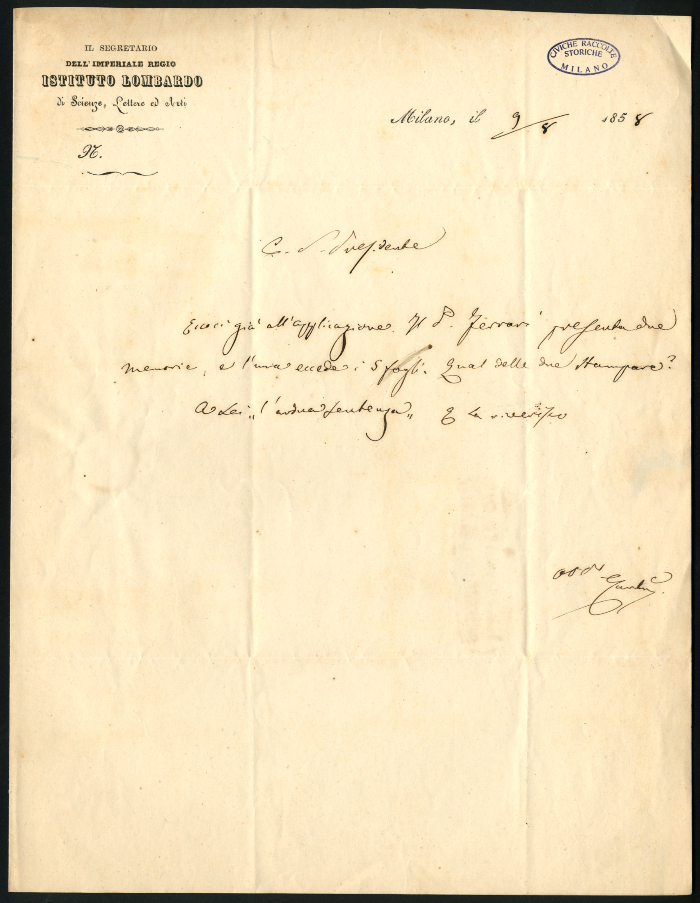 IL SEGRETARIO
DELL'IMPERIALE REGIO
ISTITUTO LOMBARDO
di Scienze, Lettere ed Arti
N.
CIVICHE RACCOLTE
STORICHE
MILANO
Milano, il 9/8 1858
C. S. Presidente
Eccoci già all'applicazione. Il P. Ferrari presenta due
memorie, e l'una eccede i 5 fogli. Qual delle due stampare?
A Lei „l'ardua sentenza„ E La riverisco